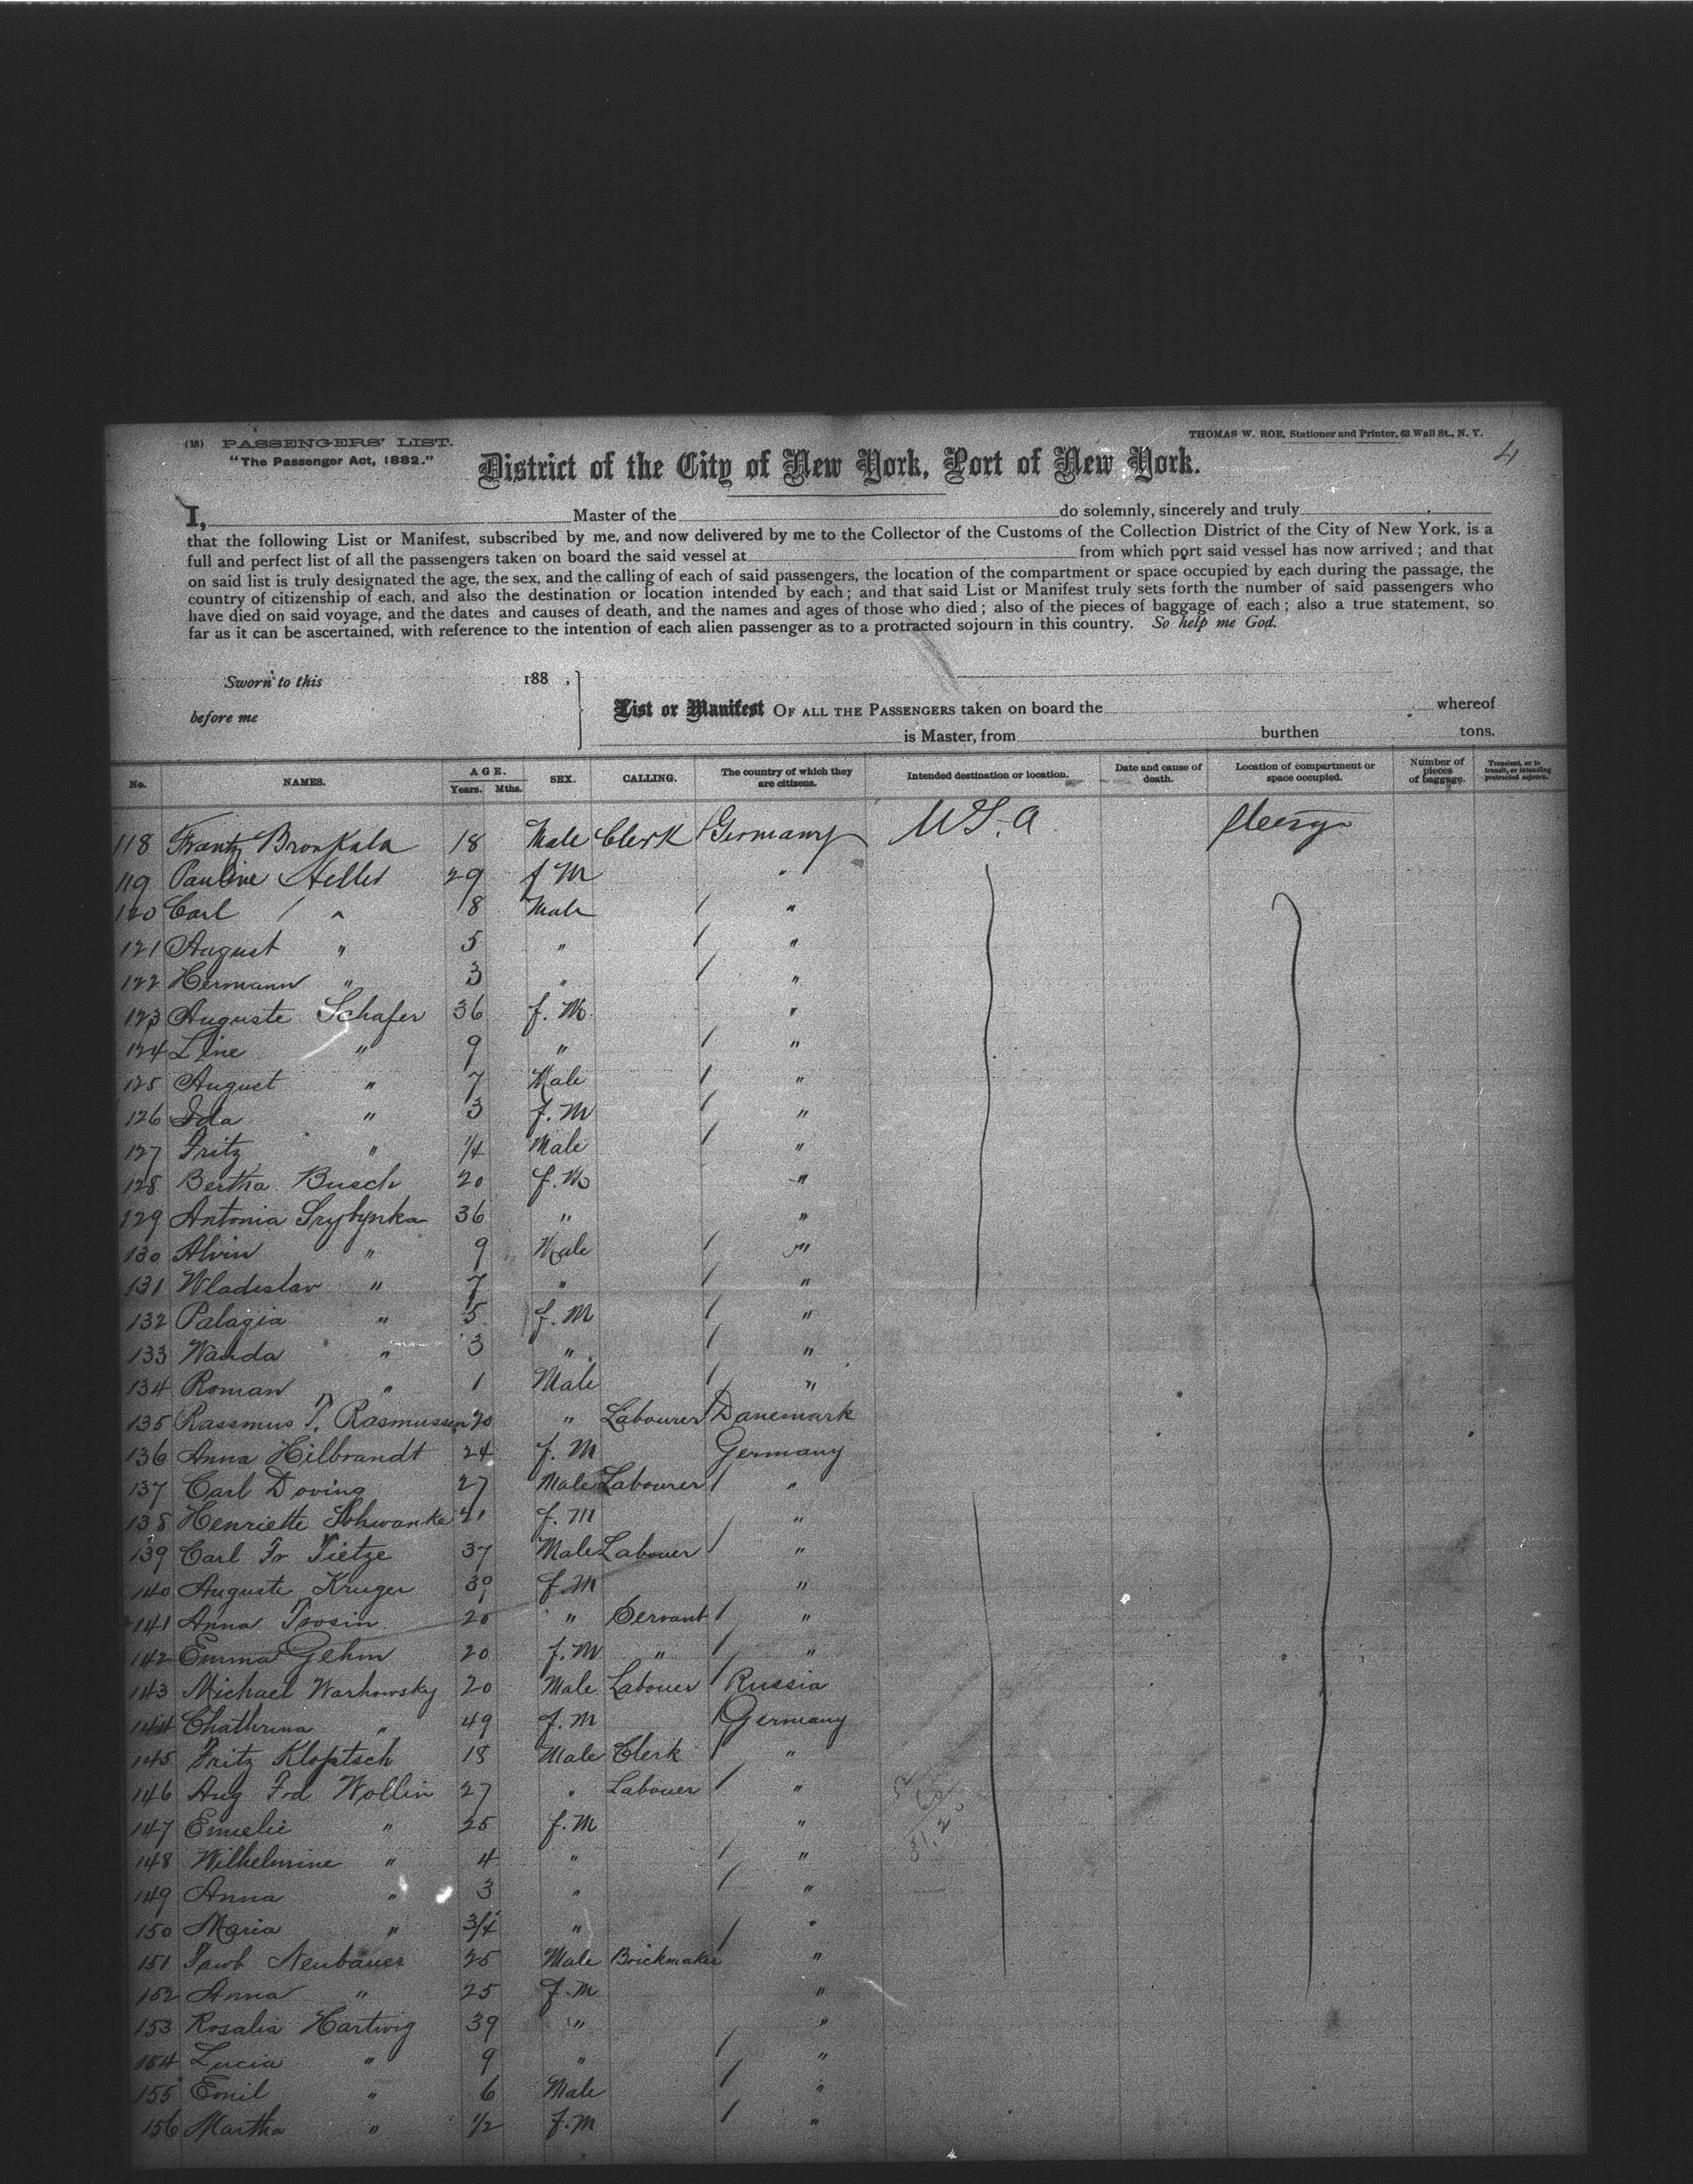 (18) PASSENGERS' LIST.
THOMAS W. ROE, Stationer and Printer, 63 Wall St., N. Y.
"The Passenger Act, 1882."
4
District of the City of New York, Port of New York.
I, Master of the do solemnly, sincerely and truly
that the following List or Manifest, subscribed by me, and now delivered by me to the Collector of the Customs of the Collection District of the City of New York, is a
full and perfect list of all the passengers taken on board the said vessel at from which port said vessel has now arrived; and that
on said list is truly designated the age, the sex, and the calling of each of said passengers, the location of the compartment or space occupied by each during the passage, the
country of citizenship of each, and also the destination or location intended by each; and that said List or Manifest truly sets forth the number of said passengers who
have died on said voyage, and the dates and causes of death, and the names and ages of those who died; also of the pieces of baggage of each; also a true statement, so
far as it can be ascertained, with reference to the intention of each alien passenger as to a protracted sojourn in this country. So help me God.
Sworn to this 188 ,
before me
List or Manifest OF ALL THE PASSENGERS taken on board the whereof
is Master, from burthen tons.
No. NAMES. AGE. Years. Mths. SEX. CALLING. The country of which they are citizens. Intended destination or location. Date and cause of death. Location of compartment or space occupied. Number of pieces of baggage. Transient, or in transit, or intending protracted sojourn.
118 Frantz Bronkala 18 Male Clerk Germany U.S.A
119 Pauline Heller 29 f M "
120 Carl " 8 Male "
121 August " 5 " "
122 Hermann " 3 " "
123 Auguste Schafer 36 f. M "
124 Line " 9 " "
125 August " 7 Male "
126 Ida " 3 f. M "
127 Fritz " 1/4 Male "
128 Bertha Busch 20 f. M "
129 Antonia 36 " "
130 Alvin " 9 Male "
131 Wladislav " 7 " "
132 Palagia " 5 f. M "
133 Wanda " 3 " "
134 Roman " 1 Male "
135 Rassmus P. Rasmussen 20 " Labourer Danemark
136 Anna Hilbrandt 24 f. M Germany
137 Carl Doving 27 Male Labourer "
138 Henriette Schwanke 21 f. M "
139 Carl Fr Tietze 37 Male Labouer "
140 Auguste Kruger 39 f. M "
141 Anna Trosin 20 " Servant "
142 Emma Gehm 20 f. M " "
143 Michael Warkowsky 20 Male Labouer Russia
144 Chathrina " 49 f. M Germany
145 Fritz Klopitsch 18 Male Clerk "
146 Aug Frd Wollin 27 " Labouer "
147 Emelie " 25 f. M "
148 Wilhelmine " 4 " "
149 Anna " 3 " "
150 Maria " 3/4 " "
151 Neubauer 25 Male Brickmaker "
152 Anna " 25 f. M "
153 Rosalia Hartwig 39 " "
154 Lucia " 9 " "
155 Emil " 6 Male "
156 Martha " 1/2 f. M "